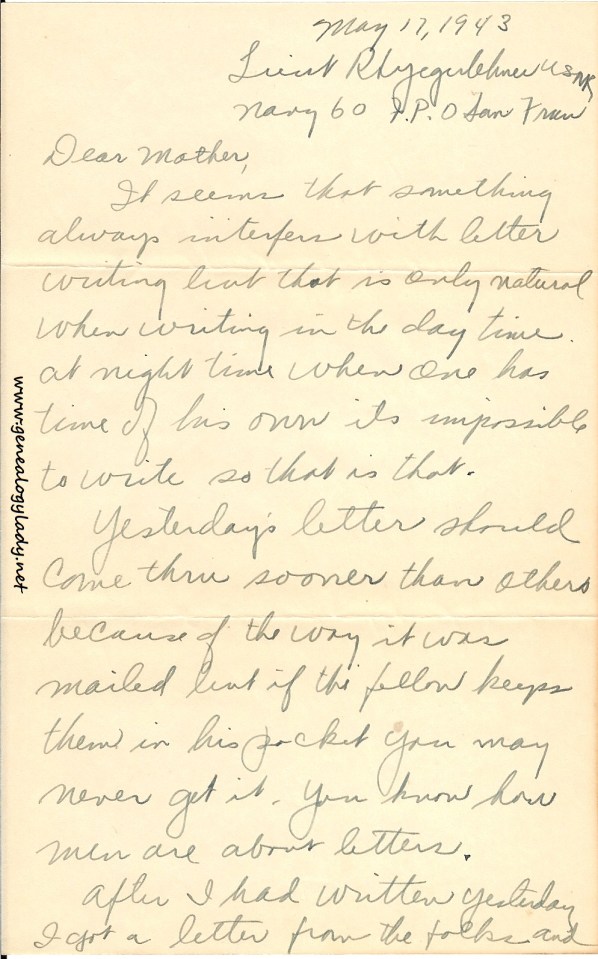 May 17, 1943
Lieut R G Yegerlehner USNR
Navy 60 F.P.O San Fran
Dear Mother,
It seems that something
always interfers with letter
writing but that is only natural
when writing in the day time.
at night time when one has
time of his own its impossible
to write so that is that.
Yesterday's letter should
come thru sooner than others
because of the way it was
mailed but if the fellow keeps
them in his pocket you may
never get it. You know how
men are about letters.
After I had written yesterday
I got a letter from the folks and
www.genealogylady.net